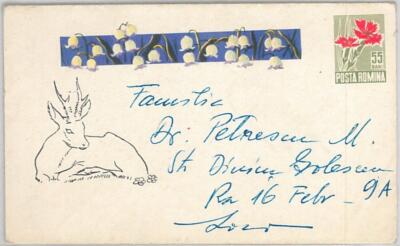 55
BANI
POSTA ROMINA
Familia
Dr. Petrescu M.
Str Dinicu Golescu
Ra 16 Febr - 9A
Loco